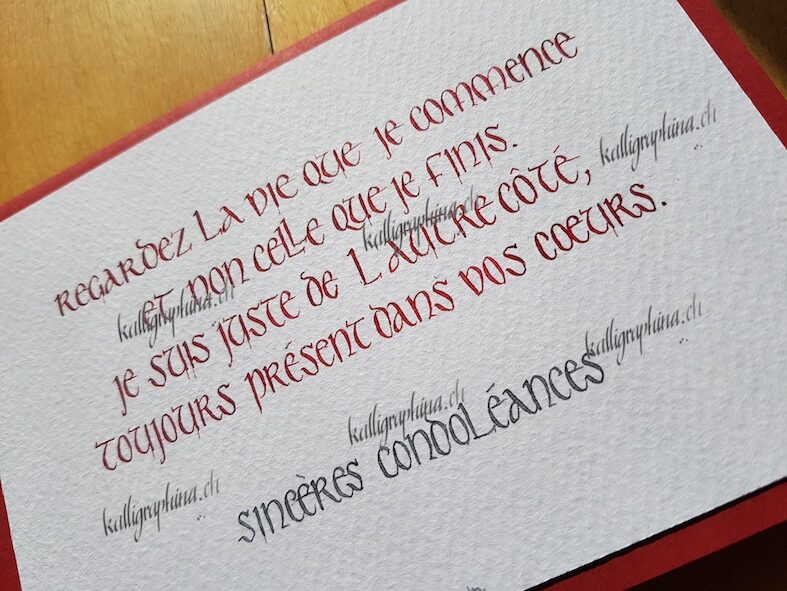 Regardez la vie que je commence
et non celle que je finis.
Je suis juste de l'autre côté,
toujours présent dans vos coeurs.
Sincères condoléances
kalligraphina.ch
kalligraphina.ch
kalligraphina.ch
kalligraphina.ch
kalligraphina.ch
kalligraphina.ch